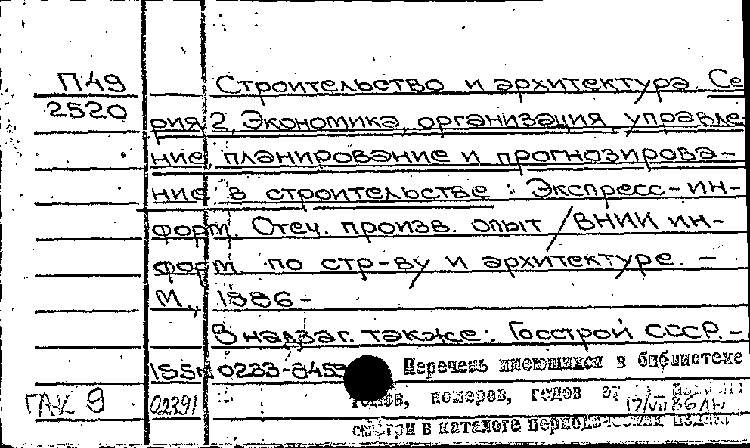 П49 Строительство и архитектура. Се
2520 рия 2, Экономика, организация, управле
ние, планирование и прогнозирова-
ние в строительстве : Экспресс-ин-
форм. Отеч. произв. опыт / ВНИИ ин-
форм. по стр-ву и архитектуре. –
М., 1986-
В надзаг. также: Госстрой СССР. –
ISSN 0233-845
Перечень имеющихся в библиотеке
ГАК 9 02291 томов, номеров, годов
смотри в каталоге периодических